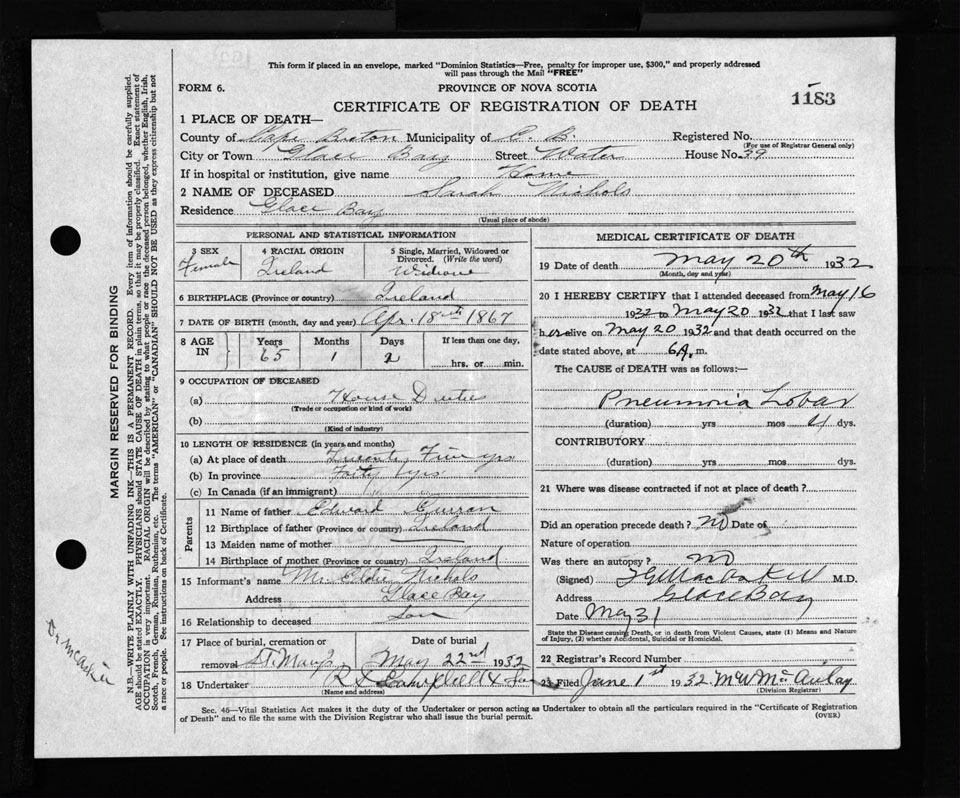 This form if placed in an envelope, marked "Dominion Statistics—Free, penalty for improper use, $300," and properly addressed
will pass through the Mail "FREE"
FORM 6.
PROVINCE OF NOVA SCOTIA
CERTIFICATE OF REGISTRATION OF DEATH
1183
1 PLACE OF DEATH—
County of Cape Breton Municipality of C. B. Registered No.
(For use of Registrar General only)
City or Town Glace Bay Street Water House No. 39
If in hospital or institution, give name Home
2 NAME OF DECEASED Sarah Nichols
Residence Glace Bay
(Usual place of abode)
PERSONAL AND STATISTICAL INFORMATION
3 SEX Female
4 RACIAL ORIGIN Ireland
5 Single, Married, Widowed or Divorced. (Write the word)
6 BIRTHPLACE (Province or country) Ireland
7 DATE OF BIRTH (month, day and year) Apr. 18th 1867
8 AGE IN Years 65 Months 1 Days 2 If less than one day, hrs. or min.
9 OCCUPATION OF DECEASED
(a) House Duties
(Trade or occupation or kind of work)
(b)
(Kind of industry)
10 LENGTH OF RESIDENCE (in years and months)
(a) At place of death Twenty Five yrs
(b) In province Forty yrs
(c) In Canada (if an immigrant)
Parents
11 Name of father Edward Curran
12 Birthplace of father (Province or country) Ireland
13 Maiden name of mother —
14 Birthplace of mother (Province or country) Ireland
15 Informant's name Mr. Eddie Nichols
Address Glace Bay
16 Relationship to deceased Son
17 Place of burial, cremation or removal St. Mary's
Date of burial May 22nd 1932
18 Undertaker
(Name and address)
MEDICAL CERTIFICATE OF DEATH
19 Date of death May 20th 1932
(Month, day and year)
20 I HEREBY CERTIFY that I attended deceased from May 16
1932 to May 20 1932 that I last saw
her alive on May 20 1932 and that death occurred on the
date stated above, at 6 A. m.
The CAUSE of DEATH was as follows:—
Pneumonia Lobar
(duration) yrs mos 4 dys.
CONTRIBUTORY
(duration) yrs mos dys.
21 Where was disease contracted if not at place of death?
Did an operation precede death? No Date of
Nature of operation
Was there an autopsy? No
(Signed) M.D.
Address Glace Bay
Date May 31
State the Disease causing Death, or in death from Violent Causes, state (1) Means and Nature
of Injury, (2) whether Accidental, Suicidal or Homicidal.
22 Registrar's Record Number
23 Filed June 1st 1932 M W McAulay
(Division Registrar)
Sec. 46—Vital Statistics Act makes it the duty of the Undertaker or person acting as Undertaker to obtain all the particulars required in the "Certificate of Registration
of Death" and to file the same with the Division Registrar who shall issue the burial permit.
(OVER)
MARGIN RESERVED FOR BINDING
N.B.—WRITE PLAINLY WITH UNFADING INK—THIS IS A PERMANENT RECORD. Every item of information should be carefully supplied.
AGE should be stated EXACTLY. PHYSICIANS should STATE CAUSE OF DEATH in plain terms, so that it may be properly classified. Exact statement of
OCCUPATION is very important. RACIAL ORIGIN will be described by stating to what people or race the deceased person belonged, whether English, Irish,
Scotch, French, German, Russian, Ruthenian, etc. The terms "AMERICAN" or "CANADIAN" SHOULD NOT BE USED as they express citizenship but not
a race or people. See instructions on back of Certificate.